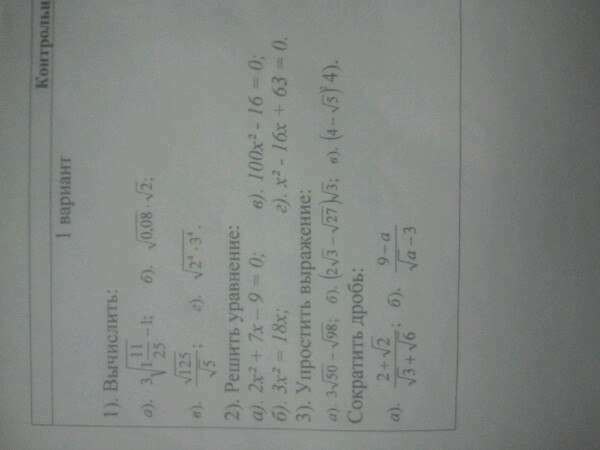 Контрольн
1 вариант
1). Вычислить:
а). 3√(1 11/25) − 1; б). √0,08 · √2;
в). √125/√5; г). √(2⁴ · 3⁴).
2). Решить уравнение:
а). 2x² + 7x − 9 = 0; в). 100x² - 16 = 0;
б). 3x² = 18x; г). x² - 16x + 63 = 0.
3). Упростить выражение:
а). 3√50 − √98; б). (2√3 − √27)√3; в). (4 − √5)² 4).
Сократить дробь:
а). (2 + √2)/(√3 + √6); б). (9 − a)/(√a − 3)